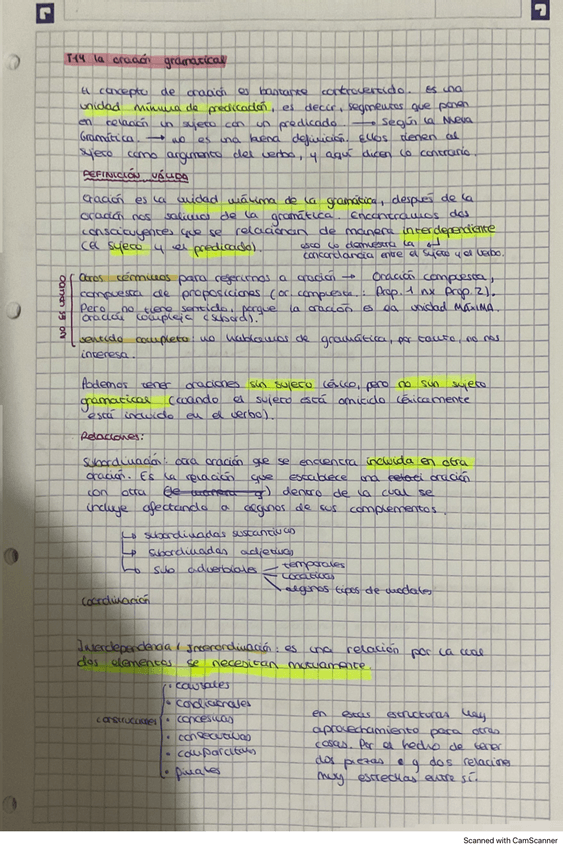 T.14 la oración gramatical
El concepto de oración es bastante controvertido. Es una
unidad mínima de predicación, es decir, segmentos que ponen
en relación un sujeto con un predicado. → Según la Nueva
Gramática. → no es una buena definición. Ellos tienen al
sujeto como argumento del verbo, y aquí dicen lo contrario.
DEFINICIÓN VÁLIDA
Oración es la unidad máxima de la gramática, después de la
oración nos salimos de la gramática. Encontramos dos
constituyentes que se relacionan de manera interdependiente
(el sujeto y el predicado). esto lo demuestra la ↵
concordancia entre el sujeto y el verbo.
Otros términos para referirnos a oración → Oración compuesta,
compuesta de proposiciones (or. compuesta: Prop. 1 nx Prop. 2).
Pero no tiene sentido, porque la oración es la unidad MÁXIMA.
oración compleja (subord).
sentido completo no hablamos de gramática, por tanto, no nos
interesa.
Podemos tener oraciones sin sujeto léxico, pero no sin sujeto
gramatical (cuando el sujeto está omitido léxicamente
está incluido en el verbo).
Relaciones:
Subordinación: otra oración que se encuentra incluida en otra
oración. Es la relación que establece una oración
con otra dentro de la cual se
incluye afectando a algunos de sus complementos.
↳ subordinadas sustantivas
↳ subordinadas adjetivas
↳ sub adverbiales
temporales
locativas
algunos tipos de modales
Coordinación
Interdependencia / Interordinación: es una relación por la cual
dos elementos se necesitan mutuamente.
construcciones
· causales
· condicionales
· concesivas
· consecutivas
· comparativas
· finales
en estas estructuras hay
aprovechamiento para otras
cosas. Por el hecho de tener
dos piezas e q dos relacion
muy estrechas entre sí.
Scanned with CamScanner